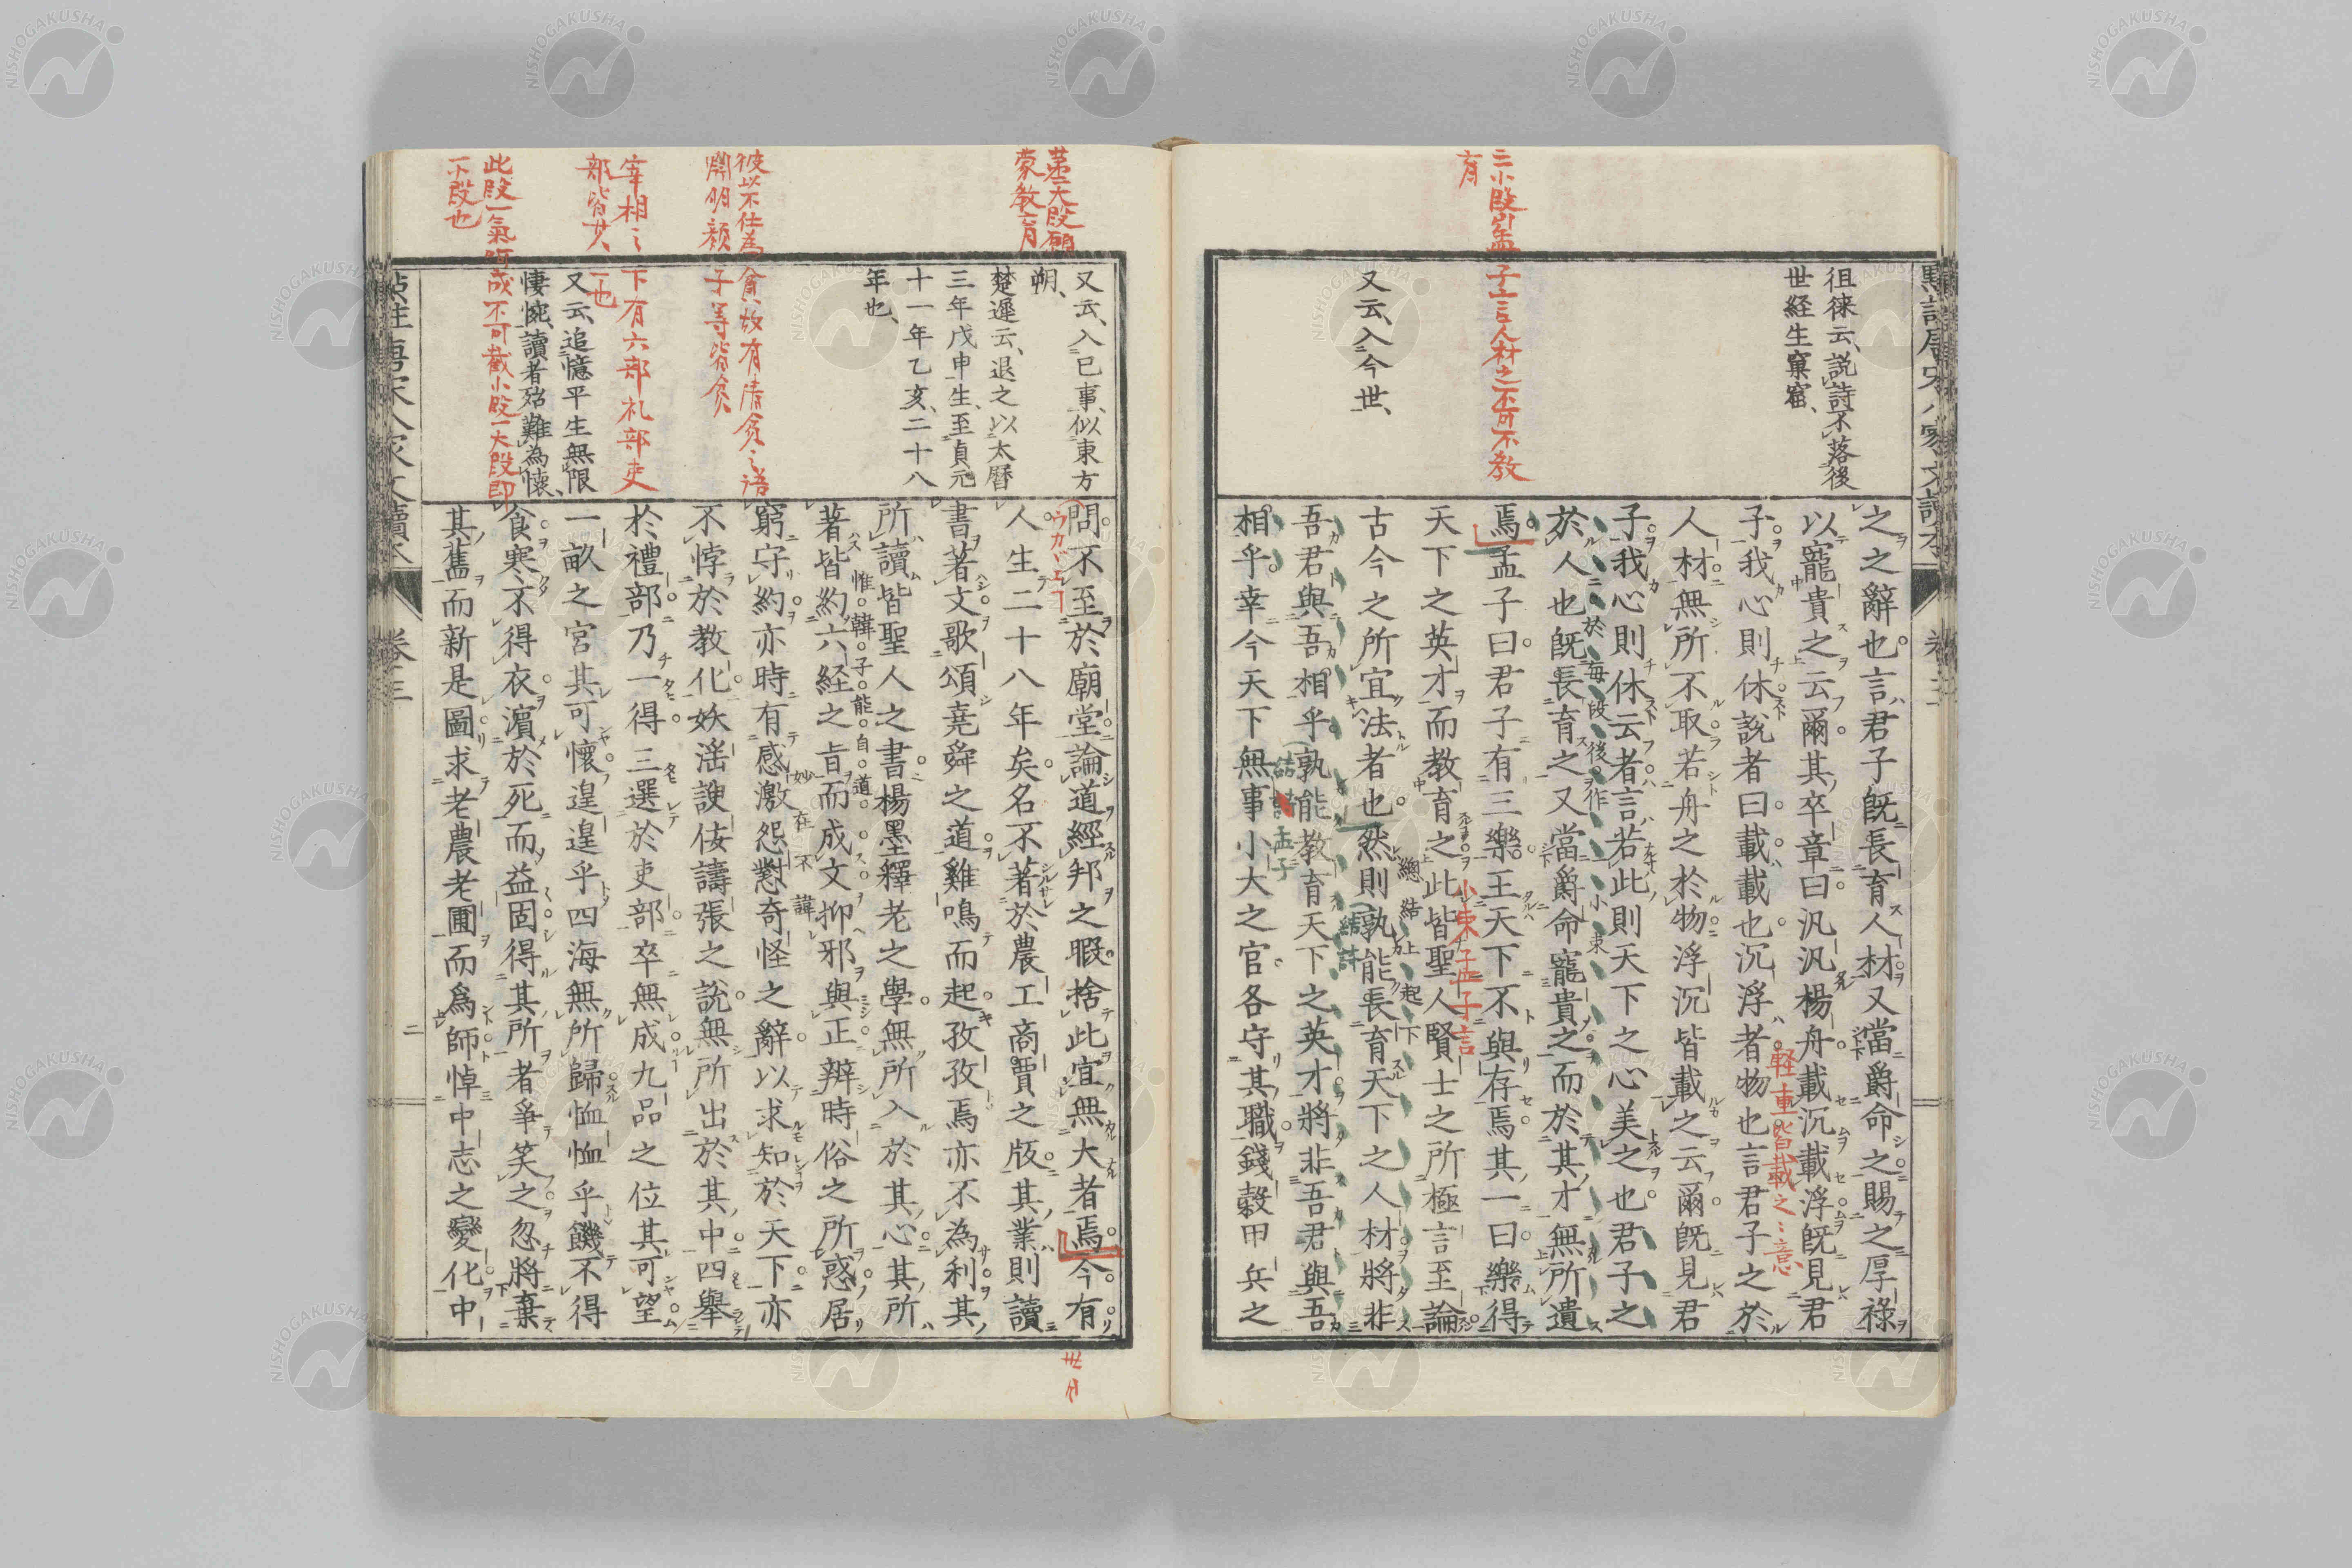 二小段引孟子言人材之不可不教
育
徂徠云、説詩不落後
世経生窠窟、
又云、入今世、
之之辭也言君子既長育人材又當爵命之賜之厚祿
以寵貴之云爾其卒章曰汎汎楊舟載沉載浮既見君
子我心則休説者曰載載也沉浮者物也言君子之於
軽重皆載之之意
人材無所不取若舟之於物浮沉皆載之云爾既見君
子我心則休云者言若此則天下之心美之也君子之
於每段後作小束
於人也既長育之又當爵命寵貴之而於其才無所遺
焉孟子曰君子有三樂王天下不與存焉其一曰樂得
天下之英才而教育之此皆聖人賢士之所極言至論
總結上起下
古今之所宜法者也然則孰能長育天下之人材將非
結詩
吾君與吾相乎孰能教育天下之英才將非吾君與吾
結孟子
相乎幸今天下無事小大之官各守其職錢穀甲兵之
卷三
第一大段願
蒙教育
又云、入已事、似東方
朔、
楚遲云、退之以太曆
三年戊申生、至貞元
十一年乙亥、二十八
年也、
彼以不仕為貧故有清貧之語
關明顏子等皆貧
宰相之下有六部礼部吏
部皆其一也
又云、追憶平生無限
悽惋、讀者殆難為懷、
此段一氣呵成不可截小段一大段即
小段也
問不至於廟堂論道經邦之暇捨此宜無大者焉今有
人生二十八年矣名不著於農工商賈之版其業則讀
書著文歌頌堯舜之道雞鳴而起孜孜焉亦不為利其
所讀皆聖人之書楊墨釋老之學無所入於其心其所
惟韓子能自道
著皆約六経之旨而成文抑邪與正辨時俗之所惑居
妙在不諱
窮守約亦時有感激怨懟奇怪之辭以求知於天下亦
不悖於教化妖淫諛佞譸張之說無所出於其中四舉
於禮部乃一得三選於吏部卒無成九品之位其可望
一畝之宮其可懷遑遑乎四海無所歸恤恤乎饑不得
食寒不得衣濵於死而益固得其所者爭笑之忽將棄
其舊而新是圖求老農老圃而爲師悼中志之變化中
點註唐宋八家文讀本
卷三
二